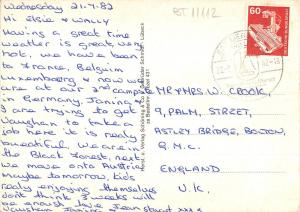 Wednesday 21.7.82
Hi Elsie & WALLY
Having a great time
weather is great, very
hot, we have been
to France, Belguim
Luxembourg & now we
are at our 2nd camp
in Germany. Janina &
I are trying to get
Vaughan to take a
job here it is really
beautiful We are in
the Black Forest, next
we move onto Austria
Maybe tomorrow, kids
really enjoying themselves
don't think 3 weeks will
be enough love Jean Stuart xxx
Vaughan Janina
BT 11112
60
MR & MRS W. COOK,
9, PALM, STREET,
ASTLEY BRIDGE, BOLTON.
G.M.C.
ENGLAND
U.K.